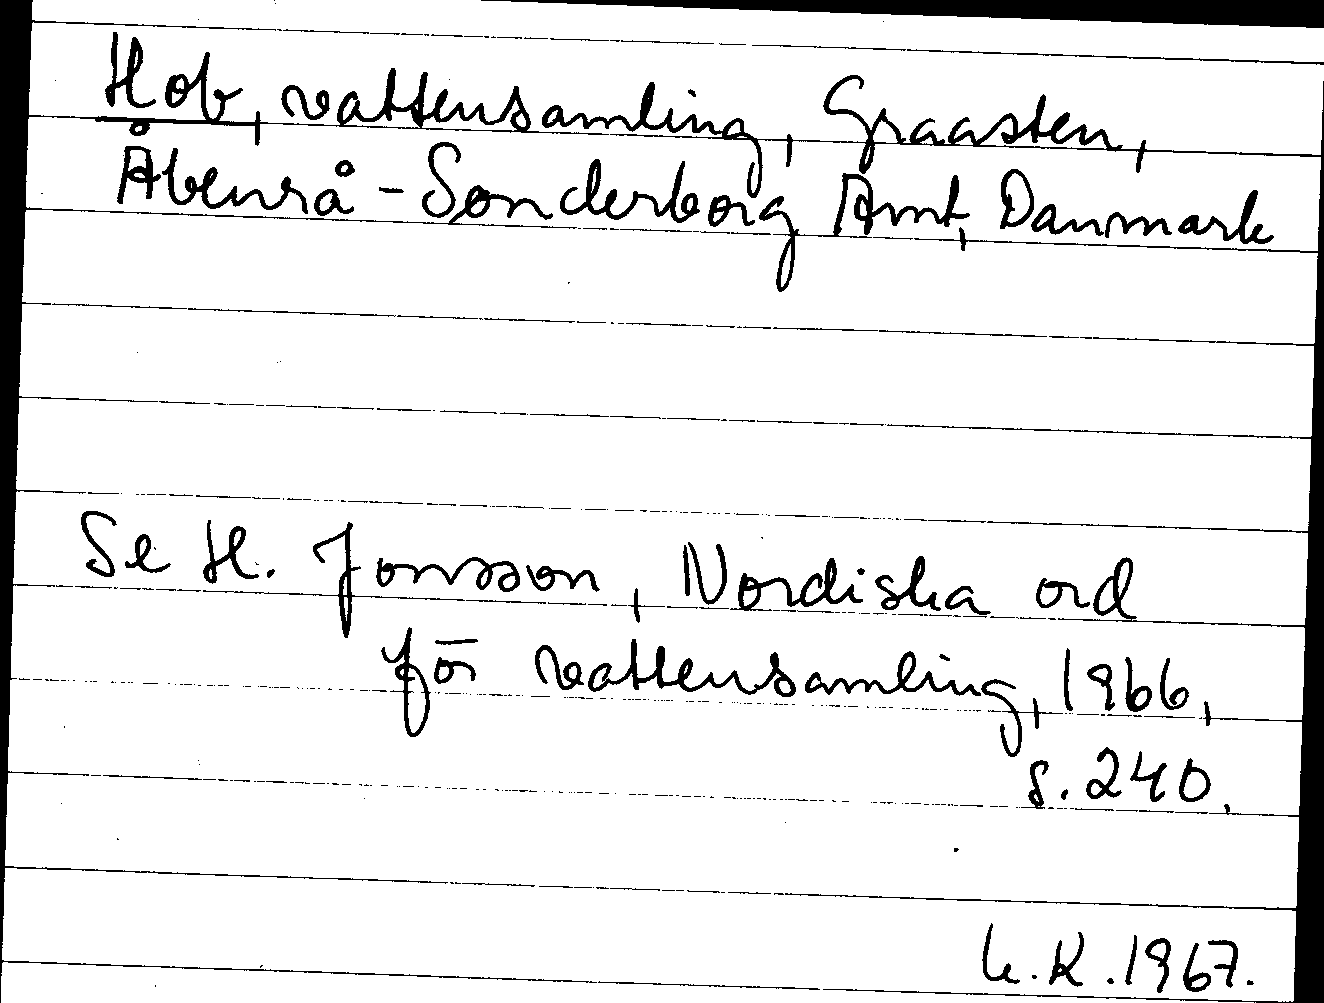 Hob, vattensamling, Graasten,
Åbenrå - Sønderborg Amt, Danmark
Se H. Jonsson, Nordiska ord
för vattensamling, 1966,
s. 240.
K.1967.